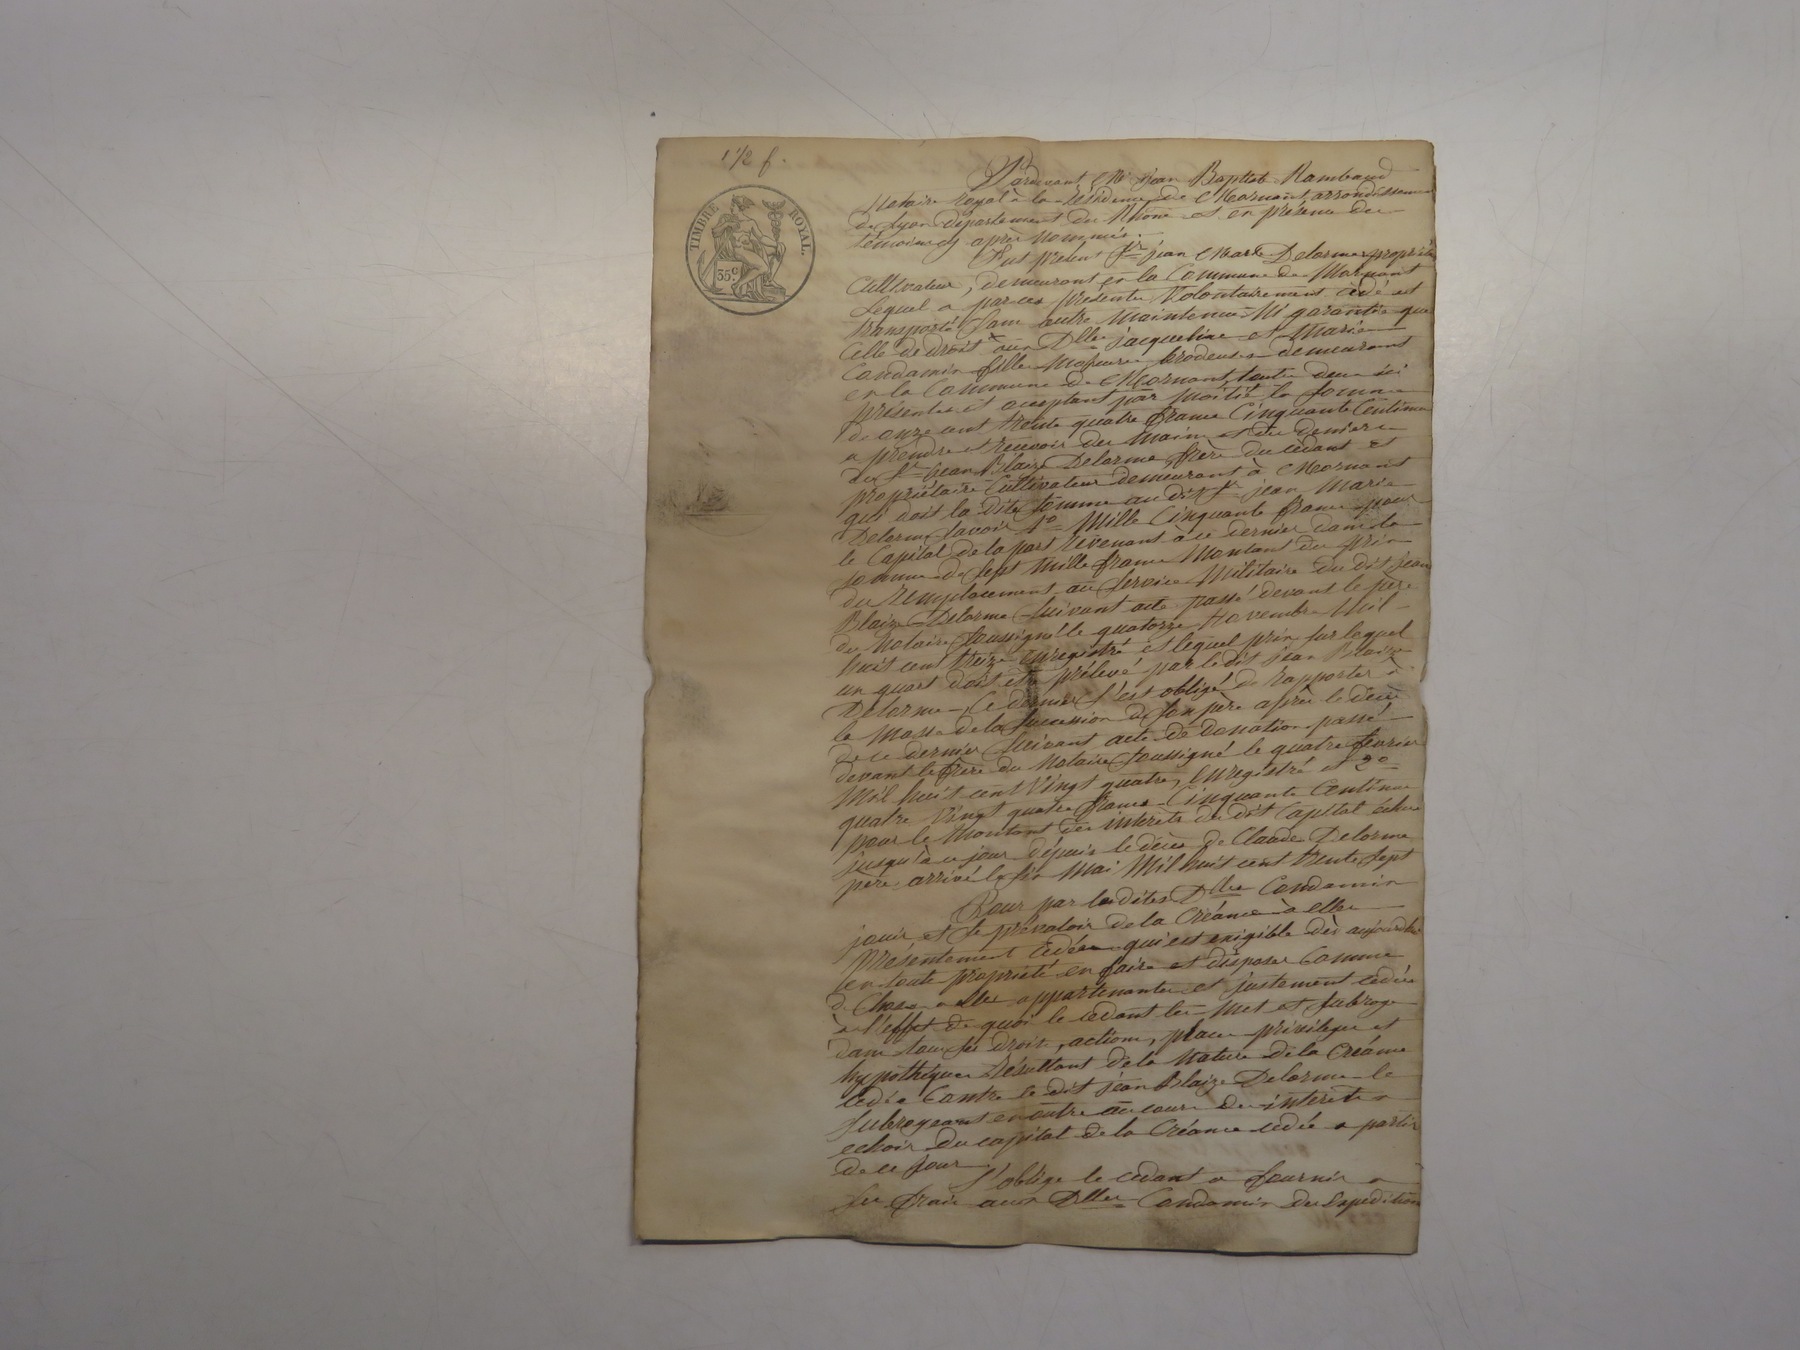 1 1/2 f.
TIMBRE ROYAL.
35 c.
Pardevant Me jean Baptiste Rambaud
Notaire royal à la résidence de Mornant, arrondissement
de Lyon département du Rhône et en présence des
témoins cy après nommés.
Fut présent Sr jean Marie Delorme propriétaire
Cultivateur, demeurant en la Commune de Mornant
Lequel a par ces présentes Volontairement cédé et
transporté sans autre maintenue ni garantie que
Celle de droit aux Dlles jacqueline et Marie
Condamin filles Majeures brodeuses demeurant
en la Commune de Mornant, toutes deux ici
présentes et acceptant par moitié la somme
de onze cent trente quatre francs Cinquante Centimes
a prendre et recevoir des mains et des deniers
du Sr jean Blaize Delorme frère du cédant et
propriétaire Cultivateur demeurant à Mornant
qui doit la dite somme au dit Sr jean Marie
Delorme savoir 1o Mille Cinquante francs pour
le Capital de la part revenant à ce dernier dans la
somme de sept mille francs Montant du prix
du remplacement au service Militaire du dit jean
Blaize Delorme suivant acte passé devant le père
du Notaire soussigné le quatorze Novembre Mil
huit cent treize enregistré et lequel prix sur lequel
un quart doit être prélevé par le dit jean Blaize
Delorme, Ce dernier s'est obligé de rapporter à
la masse de la succession de son père après le décès
de ce dernier suivant acte de donation passé
devant le père du Notaire soussigné le quatre février
Mil huit cent Vingt quatre, enregistré et 2o
quatre Vingt quatre francs Cinquante Centimes
pour le Montant des intérêts du dit Capital échus
jusqu'à ce jour depuis le décès de Claude Delorme
père arrivé le six Mai Mil huit cent trente sept
Pour par les dites Dlles Condamin
jouir et se prévaloir de la Créance à elles
présentement cédée qui est exigible dès aujourd'hui
en toute propriété en faire et disposer Comme
de Chose a elles appartenante et justement cédée
à l'effet de quoi le cédant les met et subroge
dans tous ses droits, actions, place privilèges et
hypothèques résultant de la Nature de la Créance
cédée Contre le dit jean Blaize Delorme les
subrogeant en outre au cours des intérêts a
echoir du capital de la Créance cédée a partir
de ce jour.
S'oblige le cédant a fournir a
ses frais aux Dlles Condamin des Expéditions